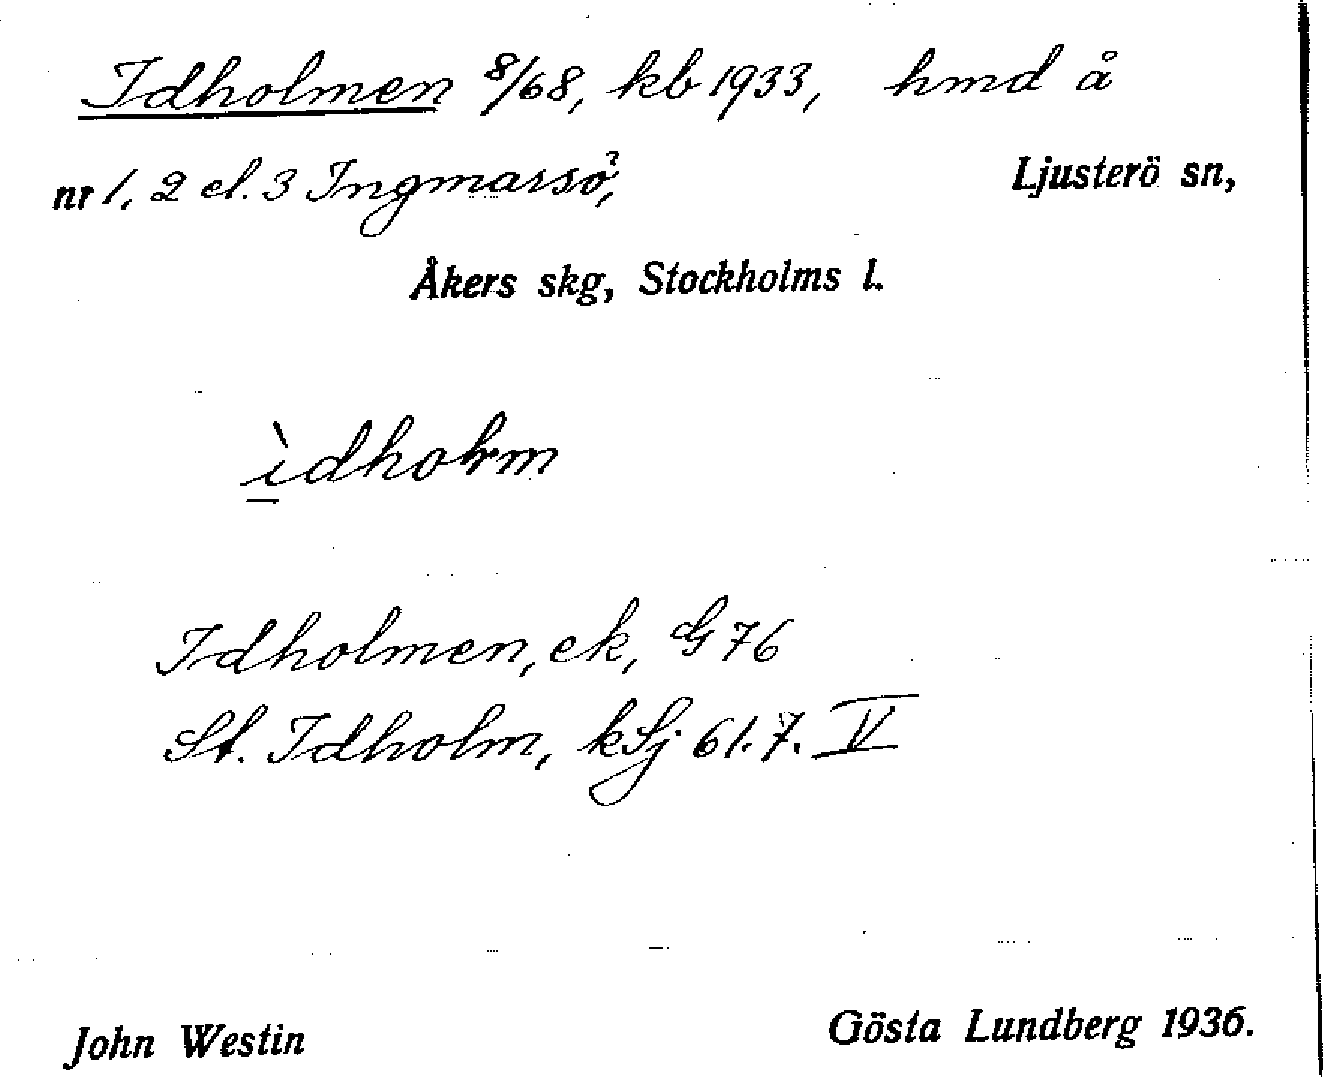 Idholmen 8/68, kb 1933, hmd å
nr 1, 2 el. 3 Ingmarsö, Ljusterö sn,
Åkers skg, Stockholms l.
ìdholm
Idholmen, ek, G 76
St. Idholm, kSj 61.7. V
John Westin Gösta Lundberg 1936.